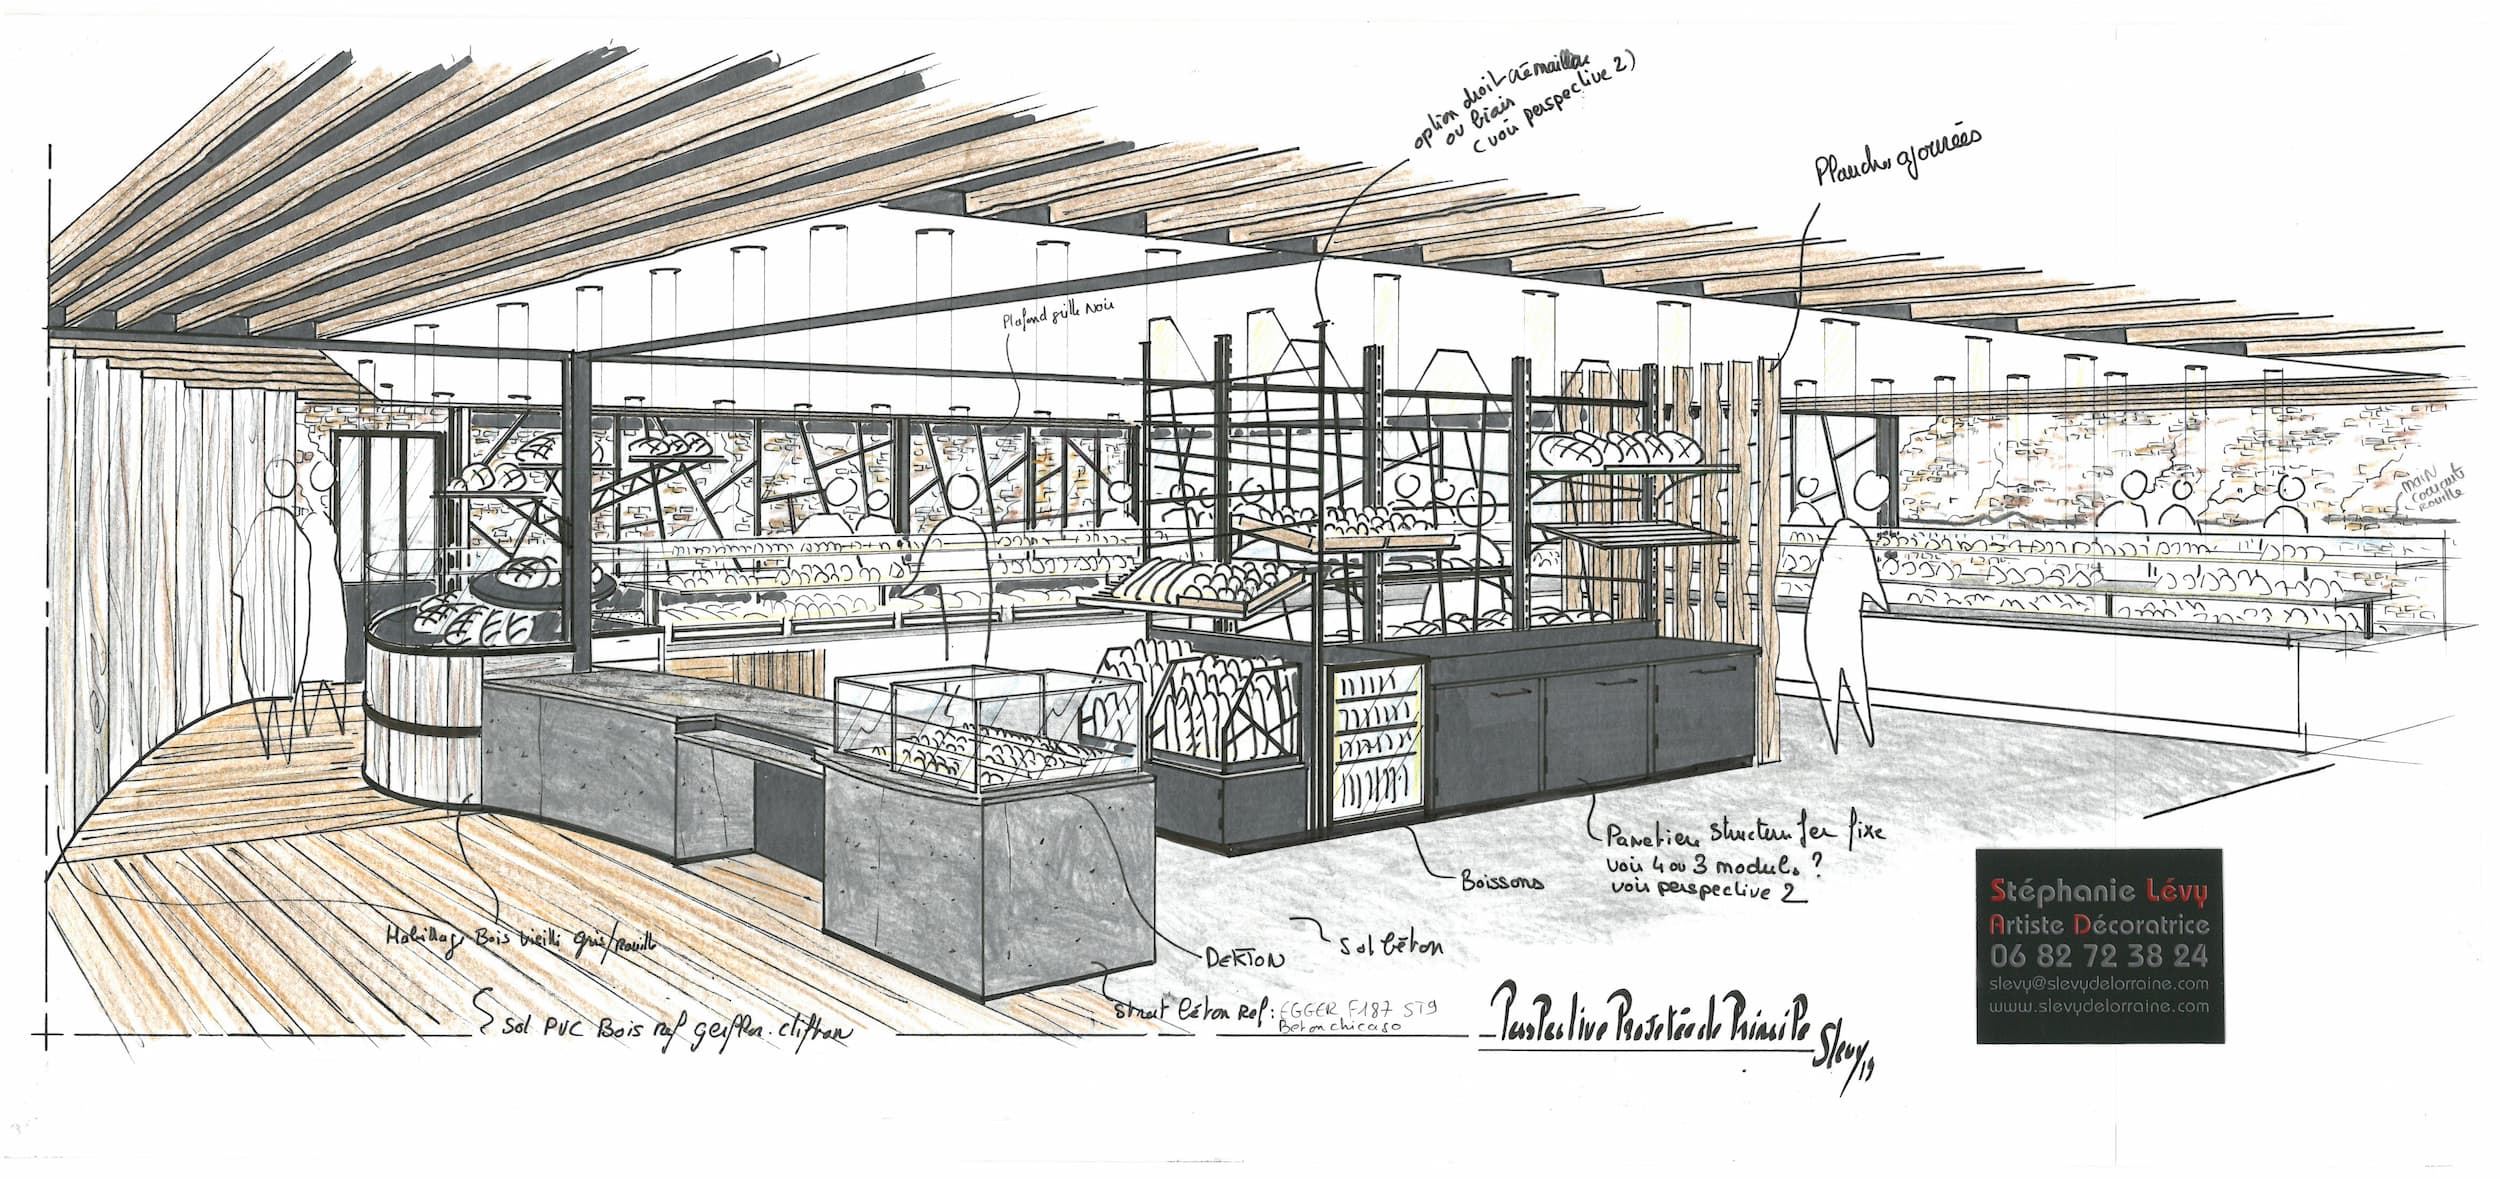 option droit crémaillère
ou biais
(voir perspective 2)
Planches ajourées
Plafond grille Noir
main
courante
rouille
Panetière structure fer fixe
voir 4 ou 3 modules ?
voir perspective 2
Boissons
Sol béton
DEKTON
Habillage Bois vieilli gris/rouille
Strat béton Ref: EGGER F187 ST9
Beton chicago
Sol PVC Bois ref gerflor. clifton
Perspective Projetée de Principe
Slevy/19
Stéphanie Lévy
Artiste Décoratrice
06 82 72 38 24
slevy@slevydelorraine.com
www.slevydelorraine.com